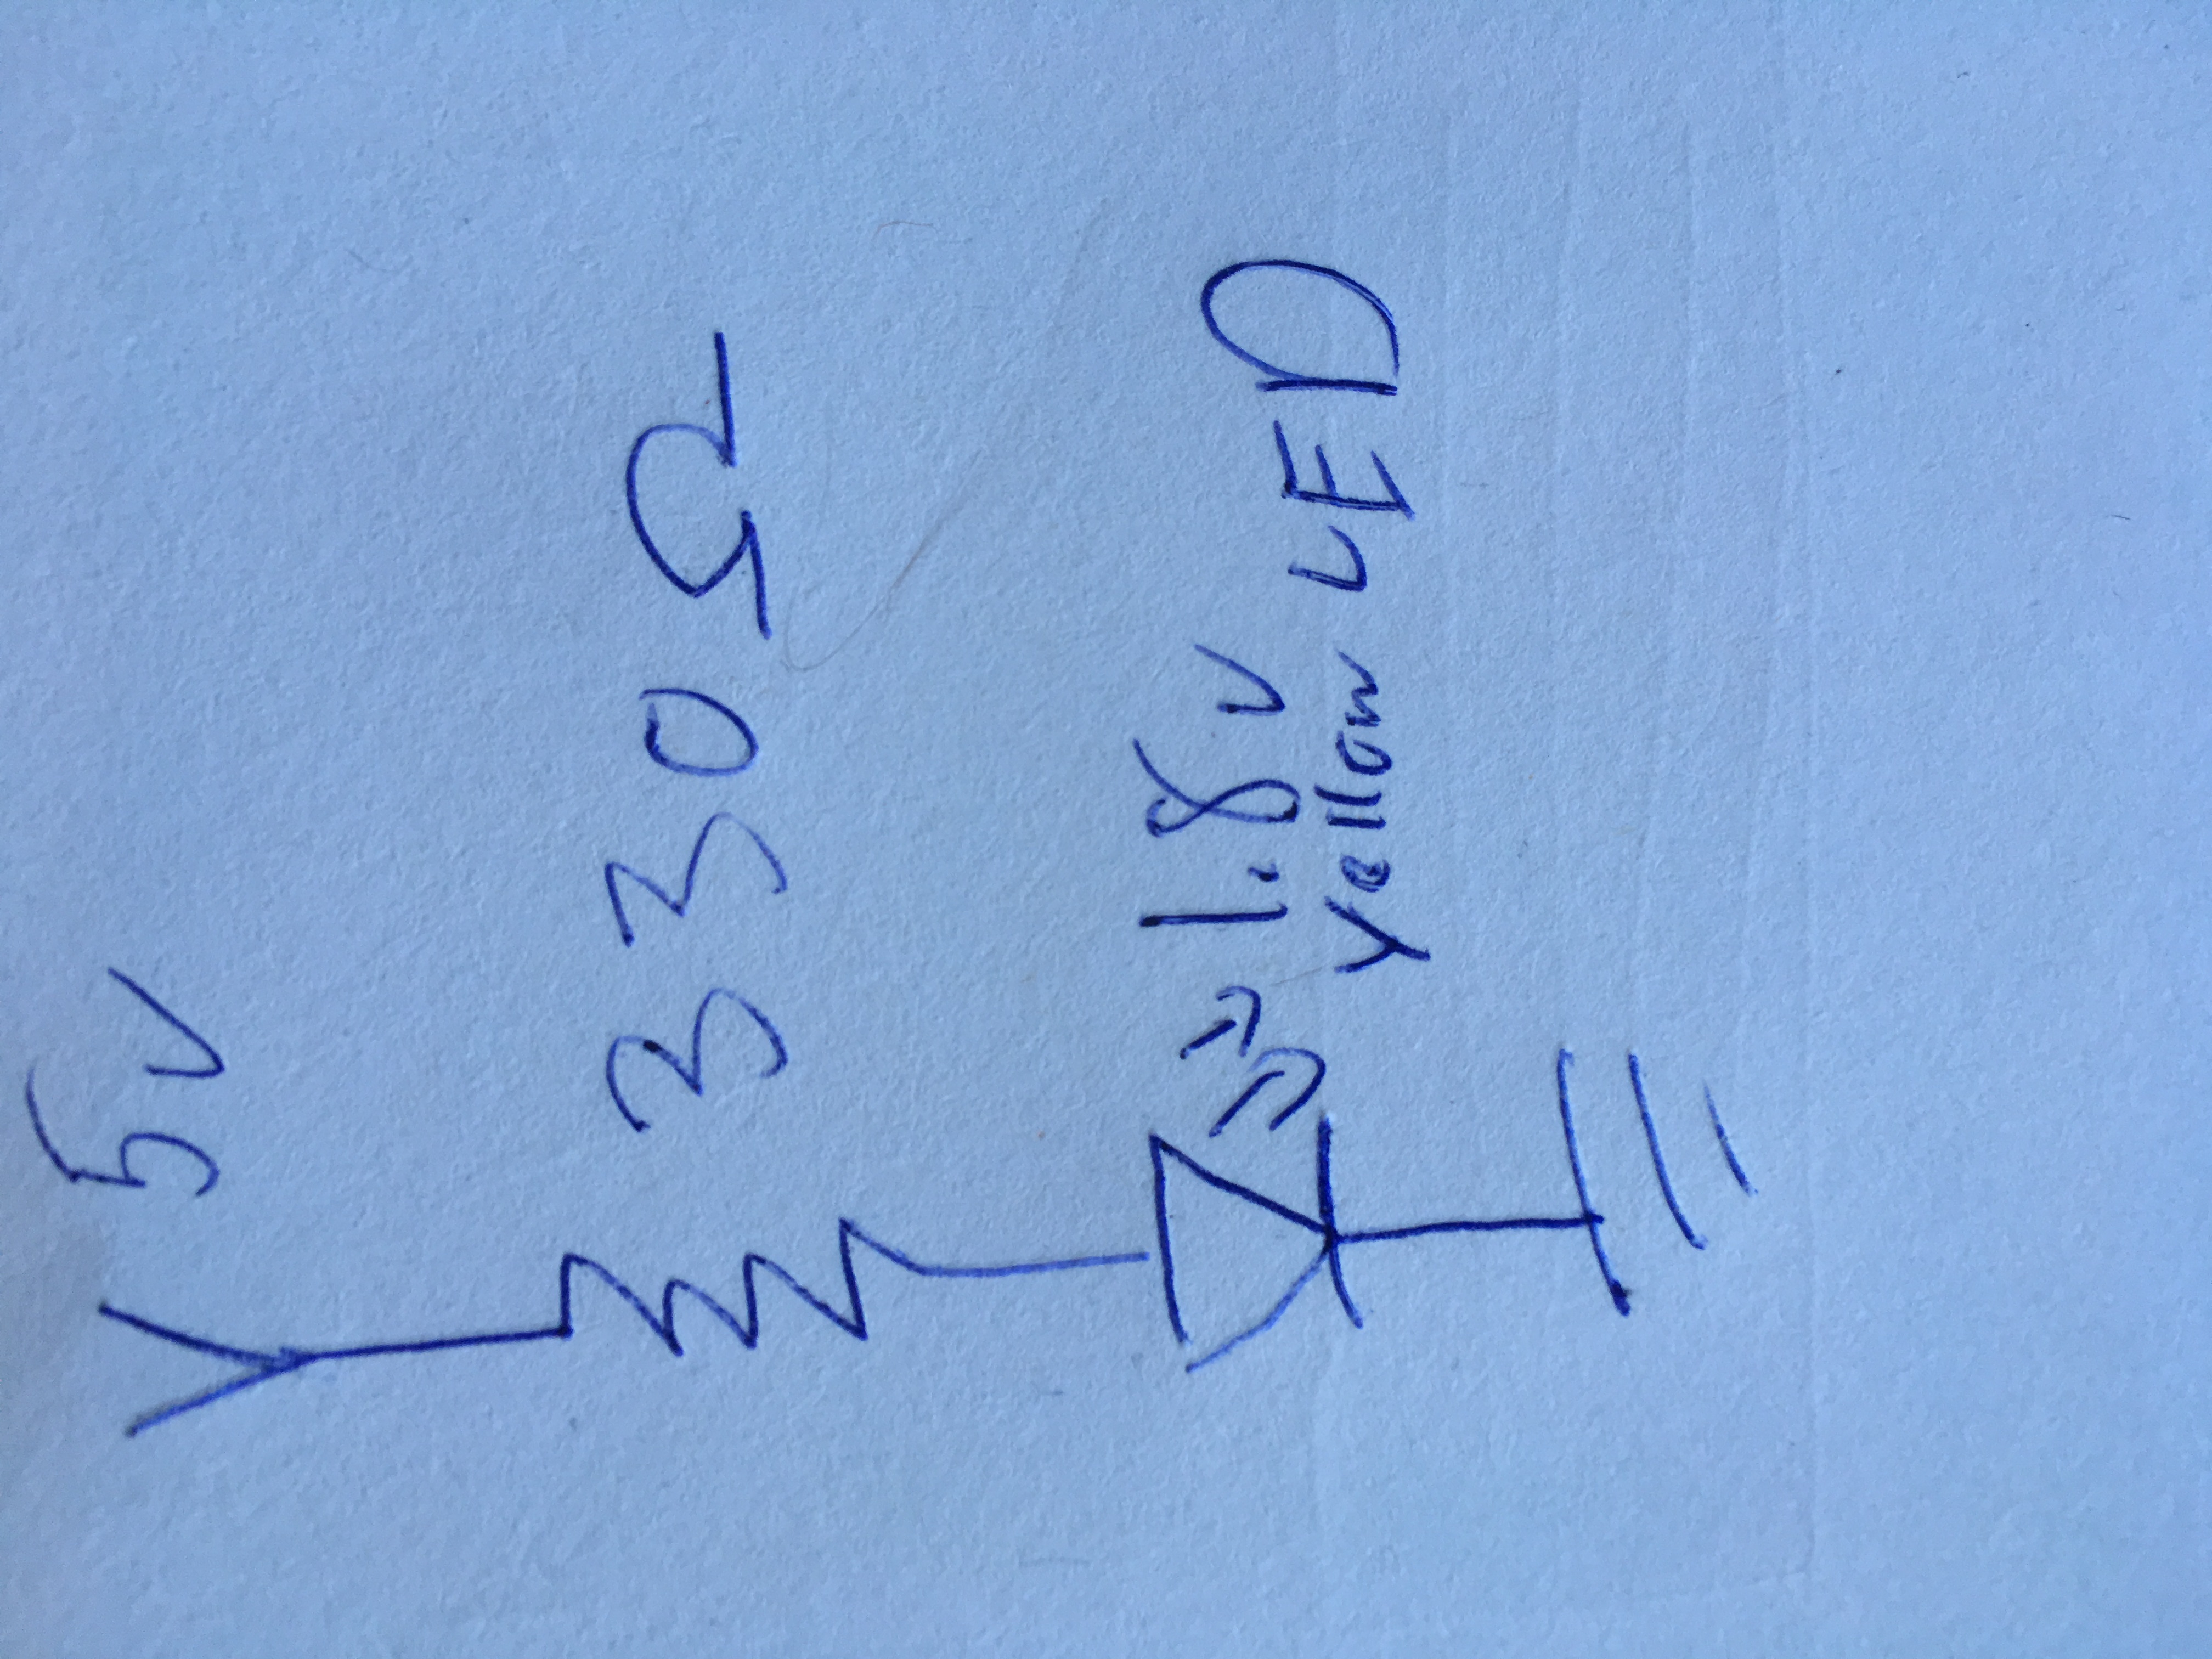 5v
330Ω
1.8v
yellow LED